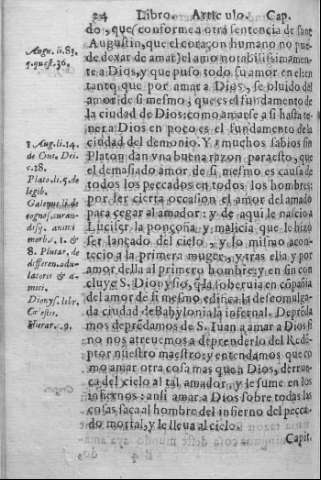 24 Libro. Artic ulo. Cap.
do, que conforme a otra sentencia de sant
Augustin, que el coraçon humano no pue-
de dexar de amar) el amo notabilissimamen-
te a Dios, y que puso todo su amor en el en
tanto que por amar a Dios, se oluido del
amor de si mesmo, que es el fundamento de
la ciudad de Dios: como amarse a si hasta te-
ner a Dios en poco es el fundamento de la
ciudad del demonio. Y muchos sabios sin
Platon dan vna buena razon para esto, que
el demasiado amor de si mesmo es causa de
todos los peccados en todos los hombres:
por ser cierta occasion el amor del amado
para cegar al amador: y de aqui le nascio a
Lucifer la ponçoña, y malicia que le hizo
ser lançado del cielo, y lo mismo acon-
tecio a la primera muger, y tras ella y por
amor della al primero hombre: y en fin con
cluye S. Dionysio, q̃ la soberuia en cõpañia
del amor de si mesmo edifica la desco malga-
da ciudad de Babylonia la infernal. Deprẽda
mos deprẽdamos de S. Iuan a amar a Dios si
no nos atreuemos a deprenderlo del Redẽ-
ptor nuestro maestro: y entendamos que co
mo amar otra cosa mas que a Dios, derrue-
ca del cielo al tal amador, y le sume en los
infiernos: ansi amar a Dios sobre todas las
cosas, saca al hombre del infierno del pecca-
do mortal, y le lleua al cielo.
Capit.
Augu. li. 83.
q. quest. 36.
1 Aug. li. 14.
de Ciuit. Dei.
c. 28.
Plato. li. 5. de
legib.
Galenus, li. de
cognos. curan-
disq. animi
morbis. c. 1. &
8. Plutar. de
differen. adu-
latoris & a-
mici.
Dionys. lib.
Plutar. . 9.